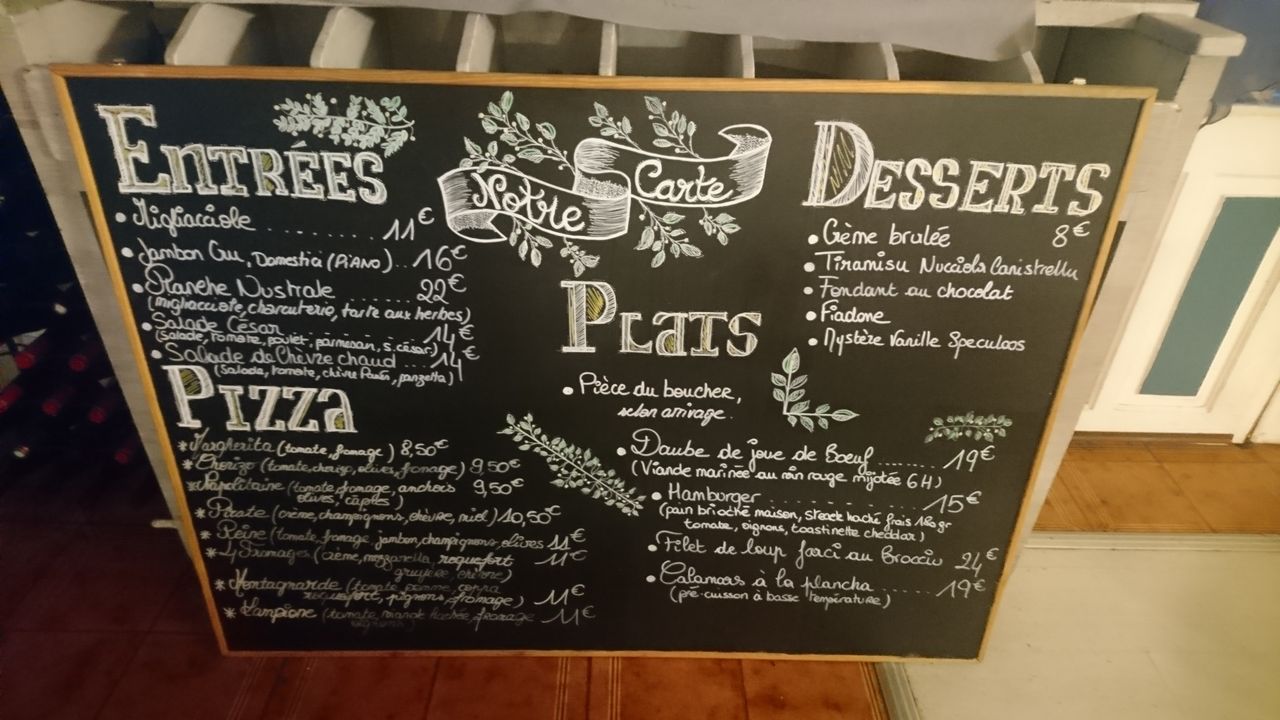 Notre Carte
ENTREES
• Migliacciole ........ 11€
• Jambon Cru, Domestici (PIANO) .. 16€
• Planche Nustrale ...... 22€
(migliacciole, charcuterie, tarte aux herbes)
• Salade César ........ 14€
(salade, tomate, poulet, parmesan, s. césar)
• Salade de Chèvre chaud ... 14€
(Salade, tomate, chèvre, panzetta)
PIZZA
* Margherita (tomate, fromage) 8,50€
* Chorizo (tomate, chorizo, olives, fromage) 9,50€
* Napolitaine (tomate, fromage, anchois 9,50€
olives, câpres)
* Pirate (crème, champignons, chèvre, miel) 10,50€
* Reine (tomate, fromage, jambon, champignons, olives 11€
* 4 Fromages (crème, mozzarella, roquefort 11€
gruyère, chèvre)
* Montagnarde (tomate, coppa
roquefort, pignons, fromage) 11€
* Campione (tomate, viande hachée, fromage 11€
oignons)
PLATS
• Pièce du boucher,
selon arrivage.
• Daube de joue de Boeuf ....... 19€
(Viande marinée au vin rouge mijotée 6H)
• Hamburger ............ 15€
(pain brioché maison, steack haché frais 180gr
tomate, oignons, toastinette cheddar)
• Filet de loup farci au Brocciu 24€
• Calamars à la plancha ....... 19€
(pré-cuisson à basse température)
DESSERTS
8€
• Crème brulée
• Tiramisu Nucciola Canistrellu
• Fondant au chocolat
• Fiadone
• Mystère Vanille Speculoos